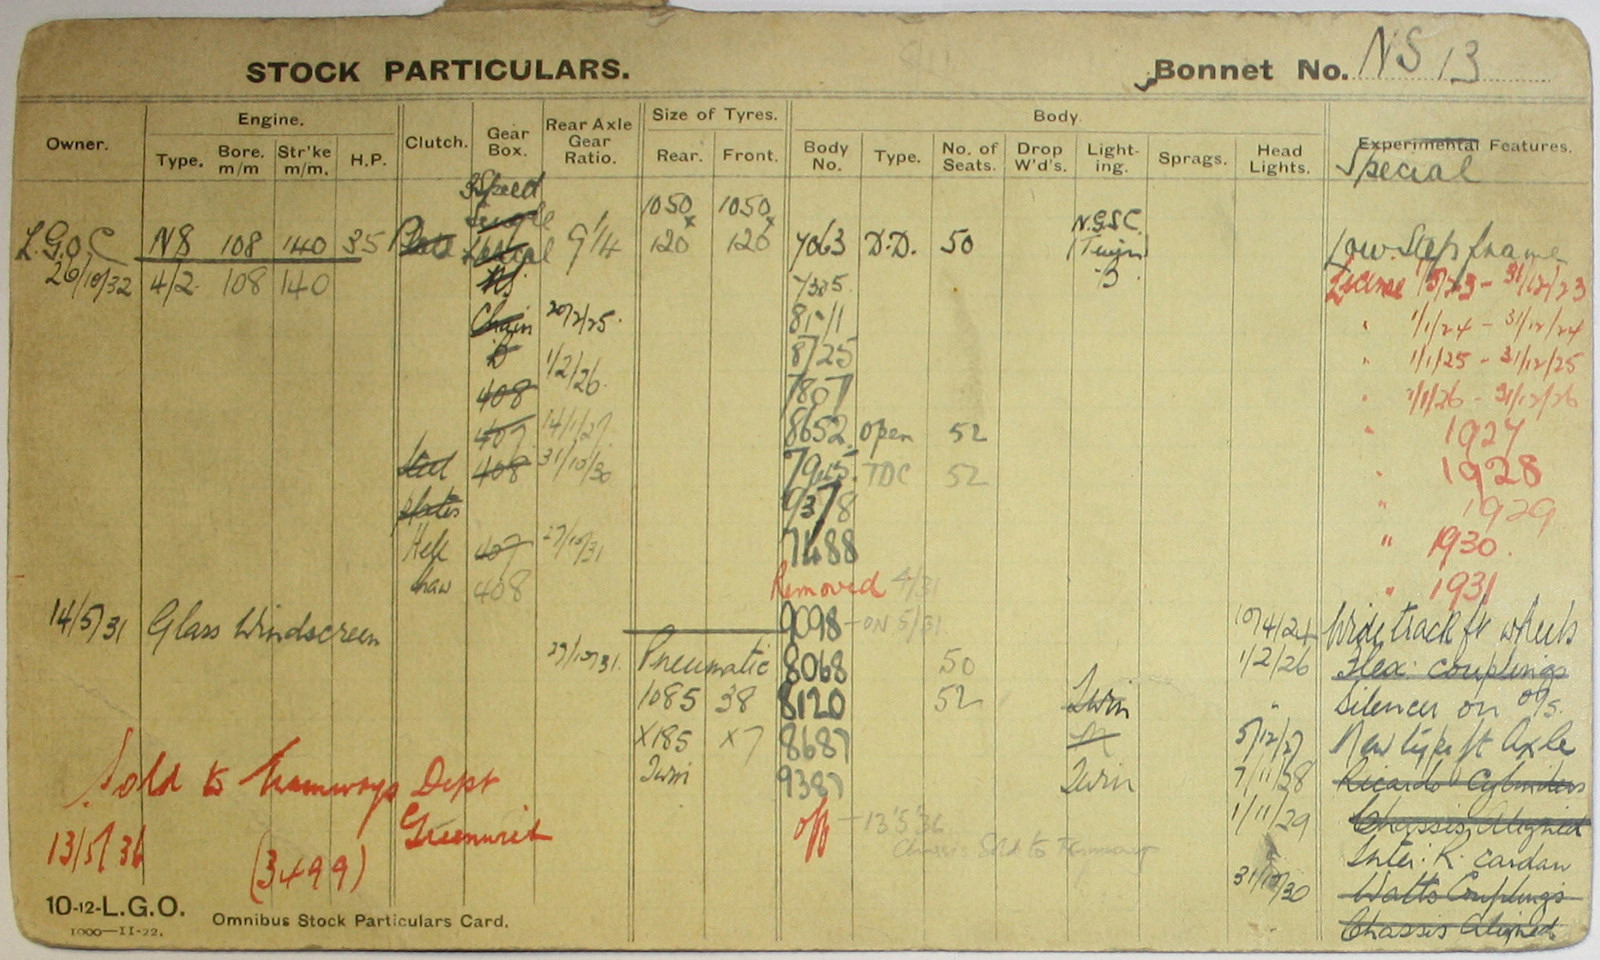 STOCK PARTICULARS. Bonnet No. NS 13
Owner. Engine. Clutch. Gear Box. Rear Axle Gear Ratio. Size of Tyres. Body. Experimental Features.
Type. Bore. m/m Str'ke m/m. H.P. Rear. Front. Body No. Type. No. of Seats. Drop W'd's. Light-ing. Sprags. Head Lights. Special
3 Speed
1050 x 1050 x N.G.S.C.
L.G.O.C NS 108 140 35 Plate 9 1/4 120 120 7063 D.D. 50 Twin Low Step frame
26/10/32 4/2 108 140 NS 7385 B License 31/12/23
Chain 20/2/25 8511 " 1/1/24 - 31/12/24
D 1/2/26 8725 " 1/1/25 - 31/12/25
408 7807 " 1/1/26 - 31/12/26
407 14/1/27 8652 open 52 " 1927
408 31/10/30 7945 TDC 52 " 1928
plates 9378 " 1929
Hele 407 27/10/31 7488 " 1930.
Shaw 408 Removed 4/31 " 1931
14/5/31 Glass Windscreen 9098 - ON 5/31 10/4/24 Wide track ft wheels
27/10/31. Pneumatic 8068 50 1/2/26 Flex: couplings
1085 38 8120 52 Twin " Silencer on o/s.
X185 X7 8687 5/12/27 New type ft Axle
Twin 9387 Twin 7/11/28 Ricardo Cylinders
Sold to Tramways Dept off - 13.5.36 1/11/29 Chassis Aligned
Greenwich Chassis Sold to Tramways
13/5/36 (3499) Inter: R. cardan
31/10/30 Watts Couplings
10-12-L.G.O. Omnibus Stock Particulars Card.
1000—11-22. Chassis Aligned